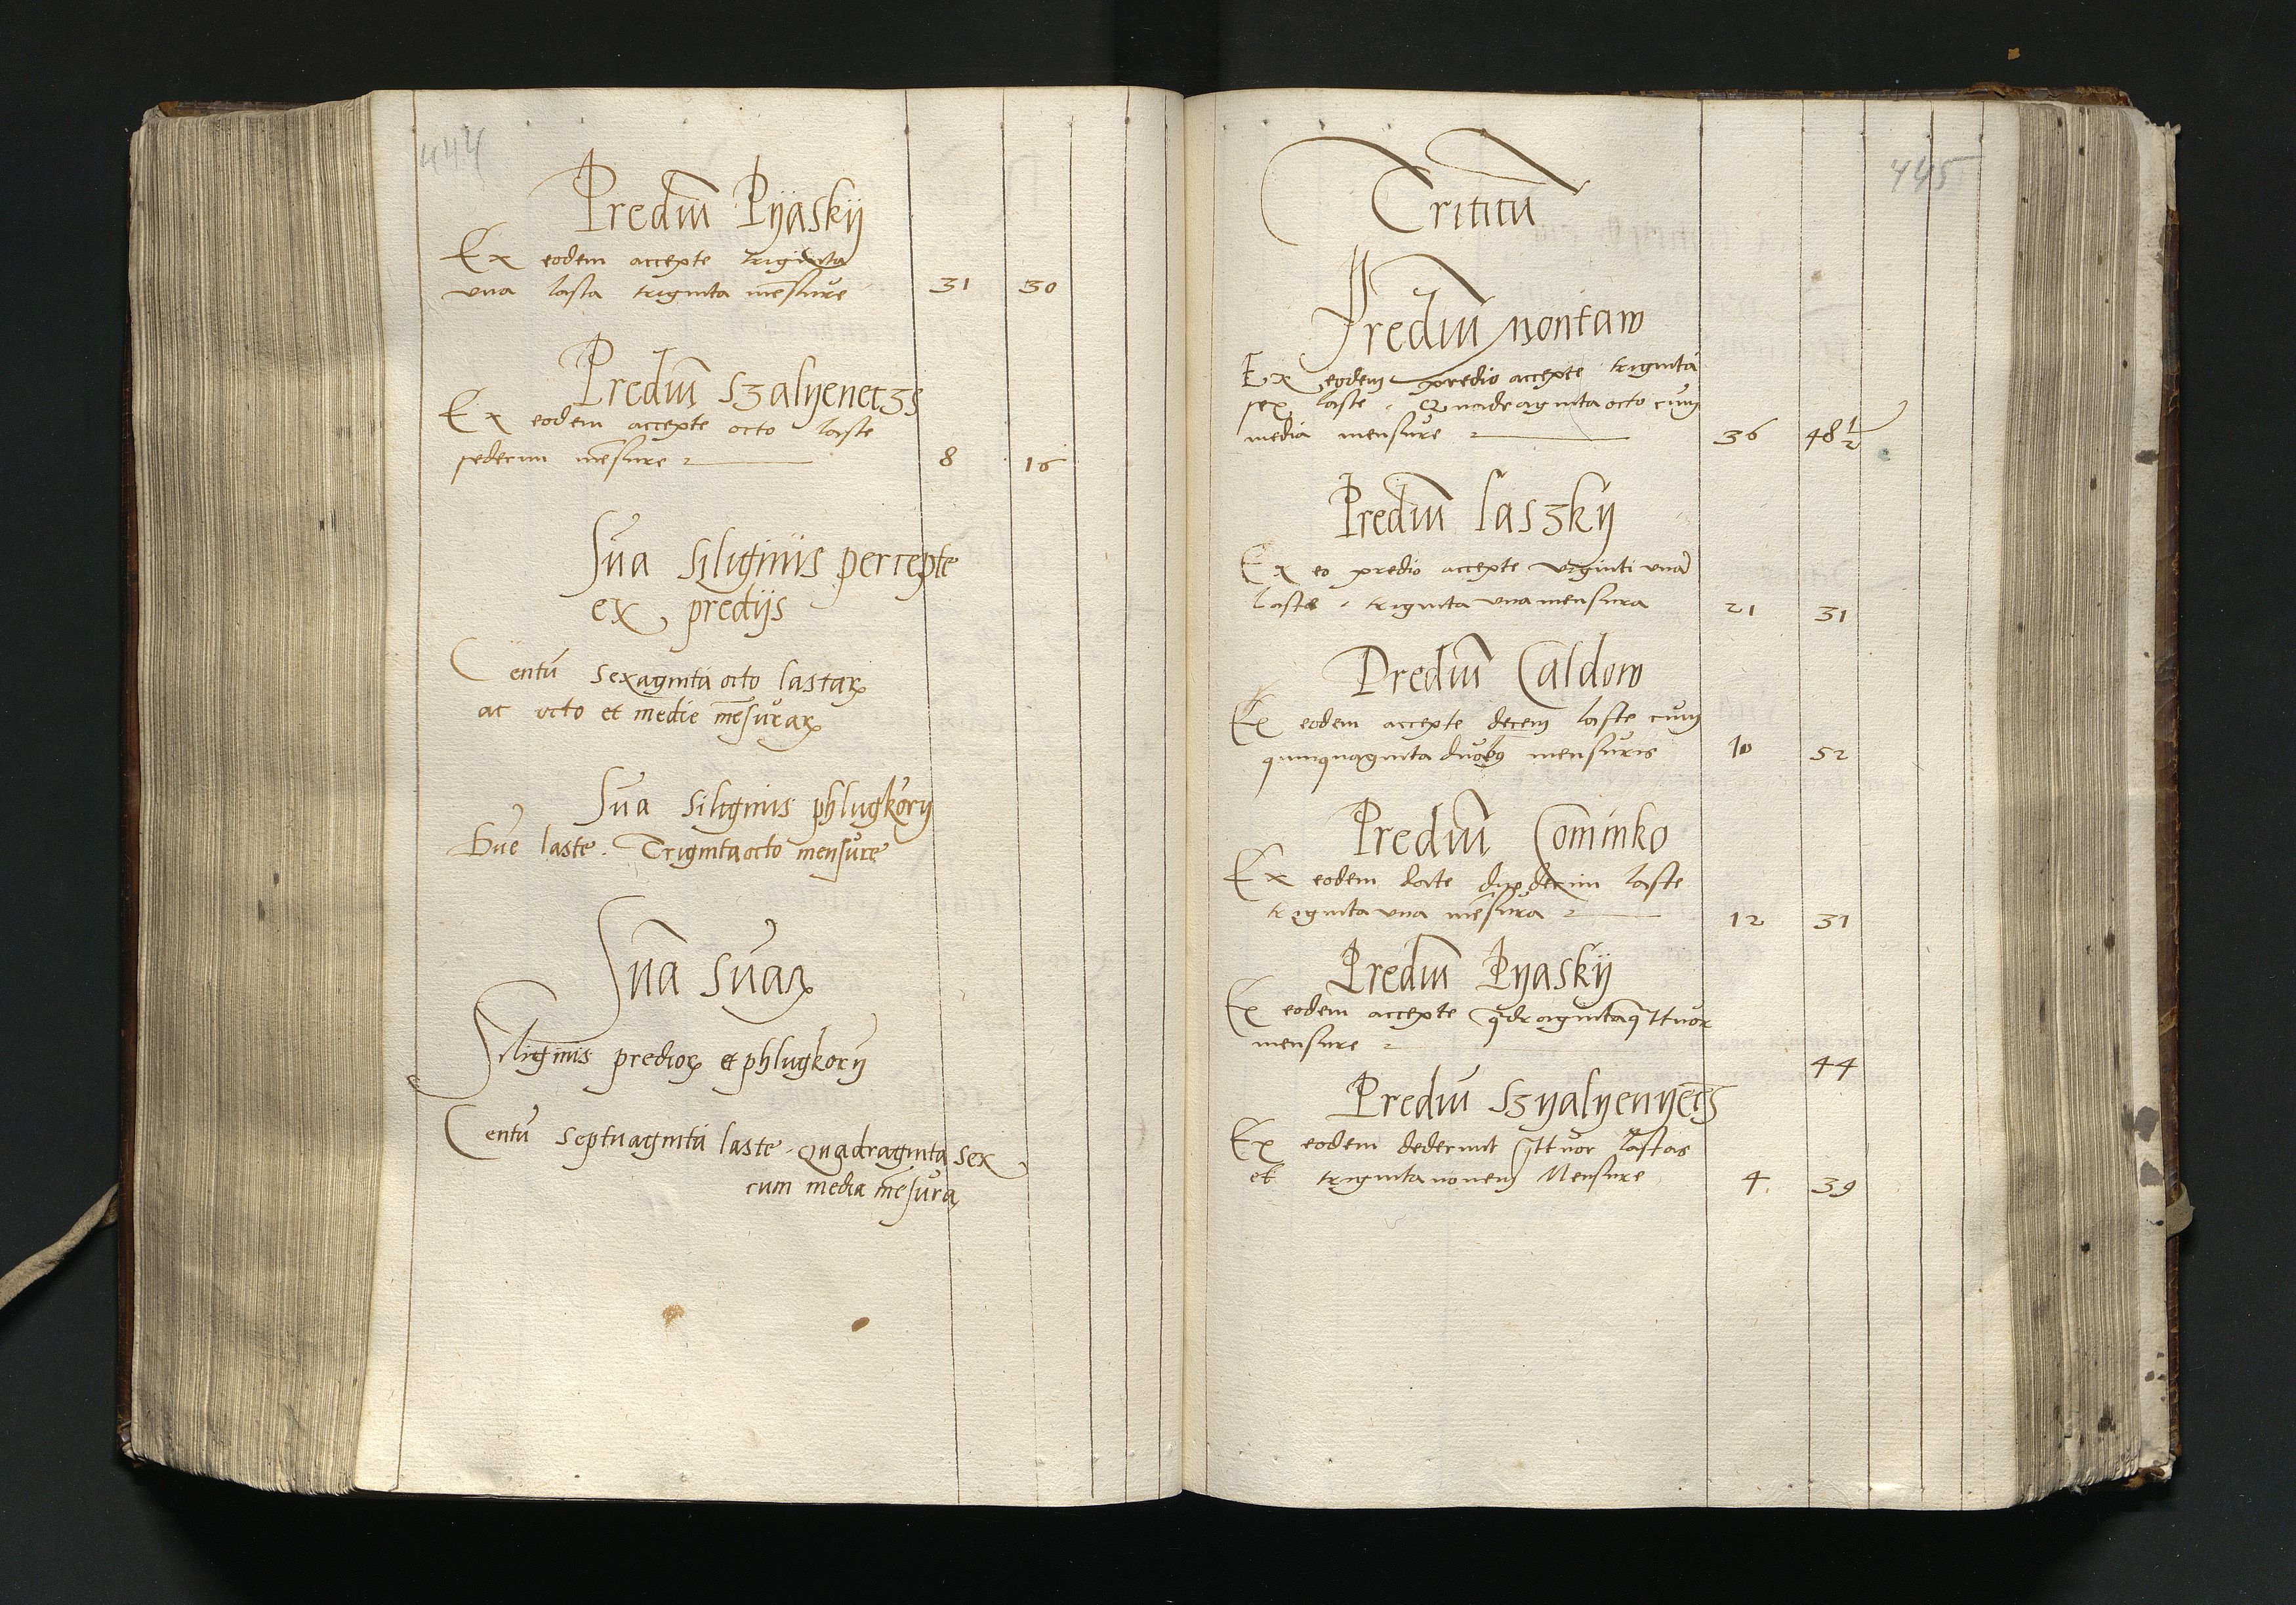 444
Prediū Pyaskij
Ex eodem accepte triginta
vna lasta triginta mēsure 31 30
Prediū Szalyenetzs
Ex eodem accepte octo laste
sedecim mēsure 8 16
Sūa Siliginis percepte
ex predijs
Centū sexaginta octo lastaꝝ
ac octo et medie mēsuraꝝ
Sūa siliginis phlugkory
Due laste. Triginta octo mensure
Sūa Sūaꝝ
Siliginis predioꝝ et phlugkory
Centū septuaginta laste. Quadraginta sex
cum media mēsura
445
Triticū
Prediū Nontaw
Ex eodem predio accepte triginta
sex laste. Quadraginta octo cum
media mensure 36 48 1/2
Prediū laszky
Ex eo predio accepte viginti vna
laste. triginta vna mensura 21 31
Prediū Caldow
Ex eodem accepte decem laste cum
quinquaginta duobꝰ mensuris 10 52
Prediū Cominko
Ex eodem date duodecim laste
triginta vna mēsura 12 31
Prediū Pyaskij
Ex eodem accepte qdragintaqttuor
mensure 44
Prediū Szyalyenyecz
Ex eodem dederunt qttuor lastas
et triginta novem Mensure 4. 39